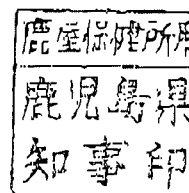 鹿屋保健所用
鹿児島県
知事印